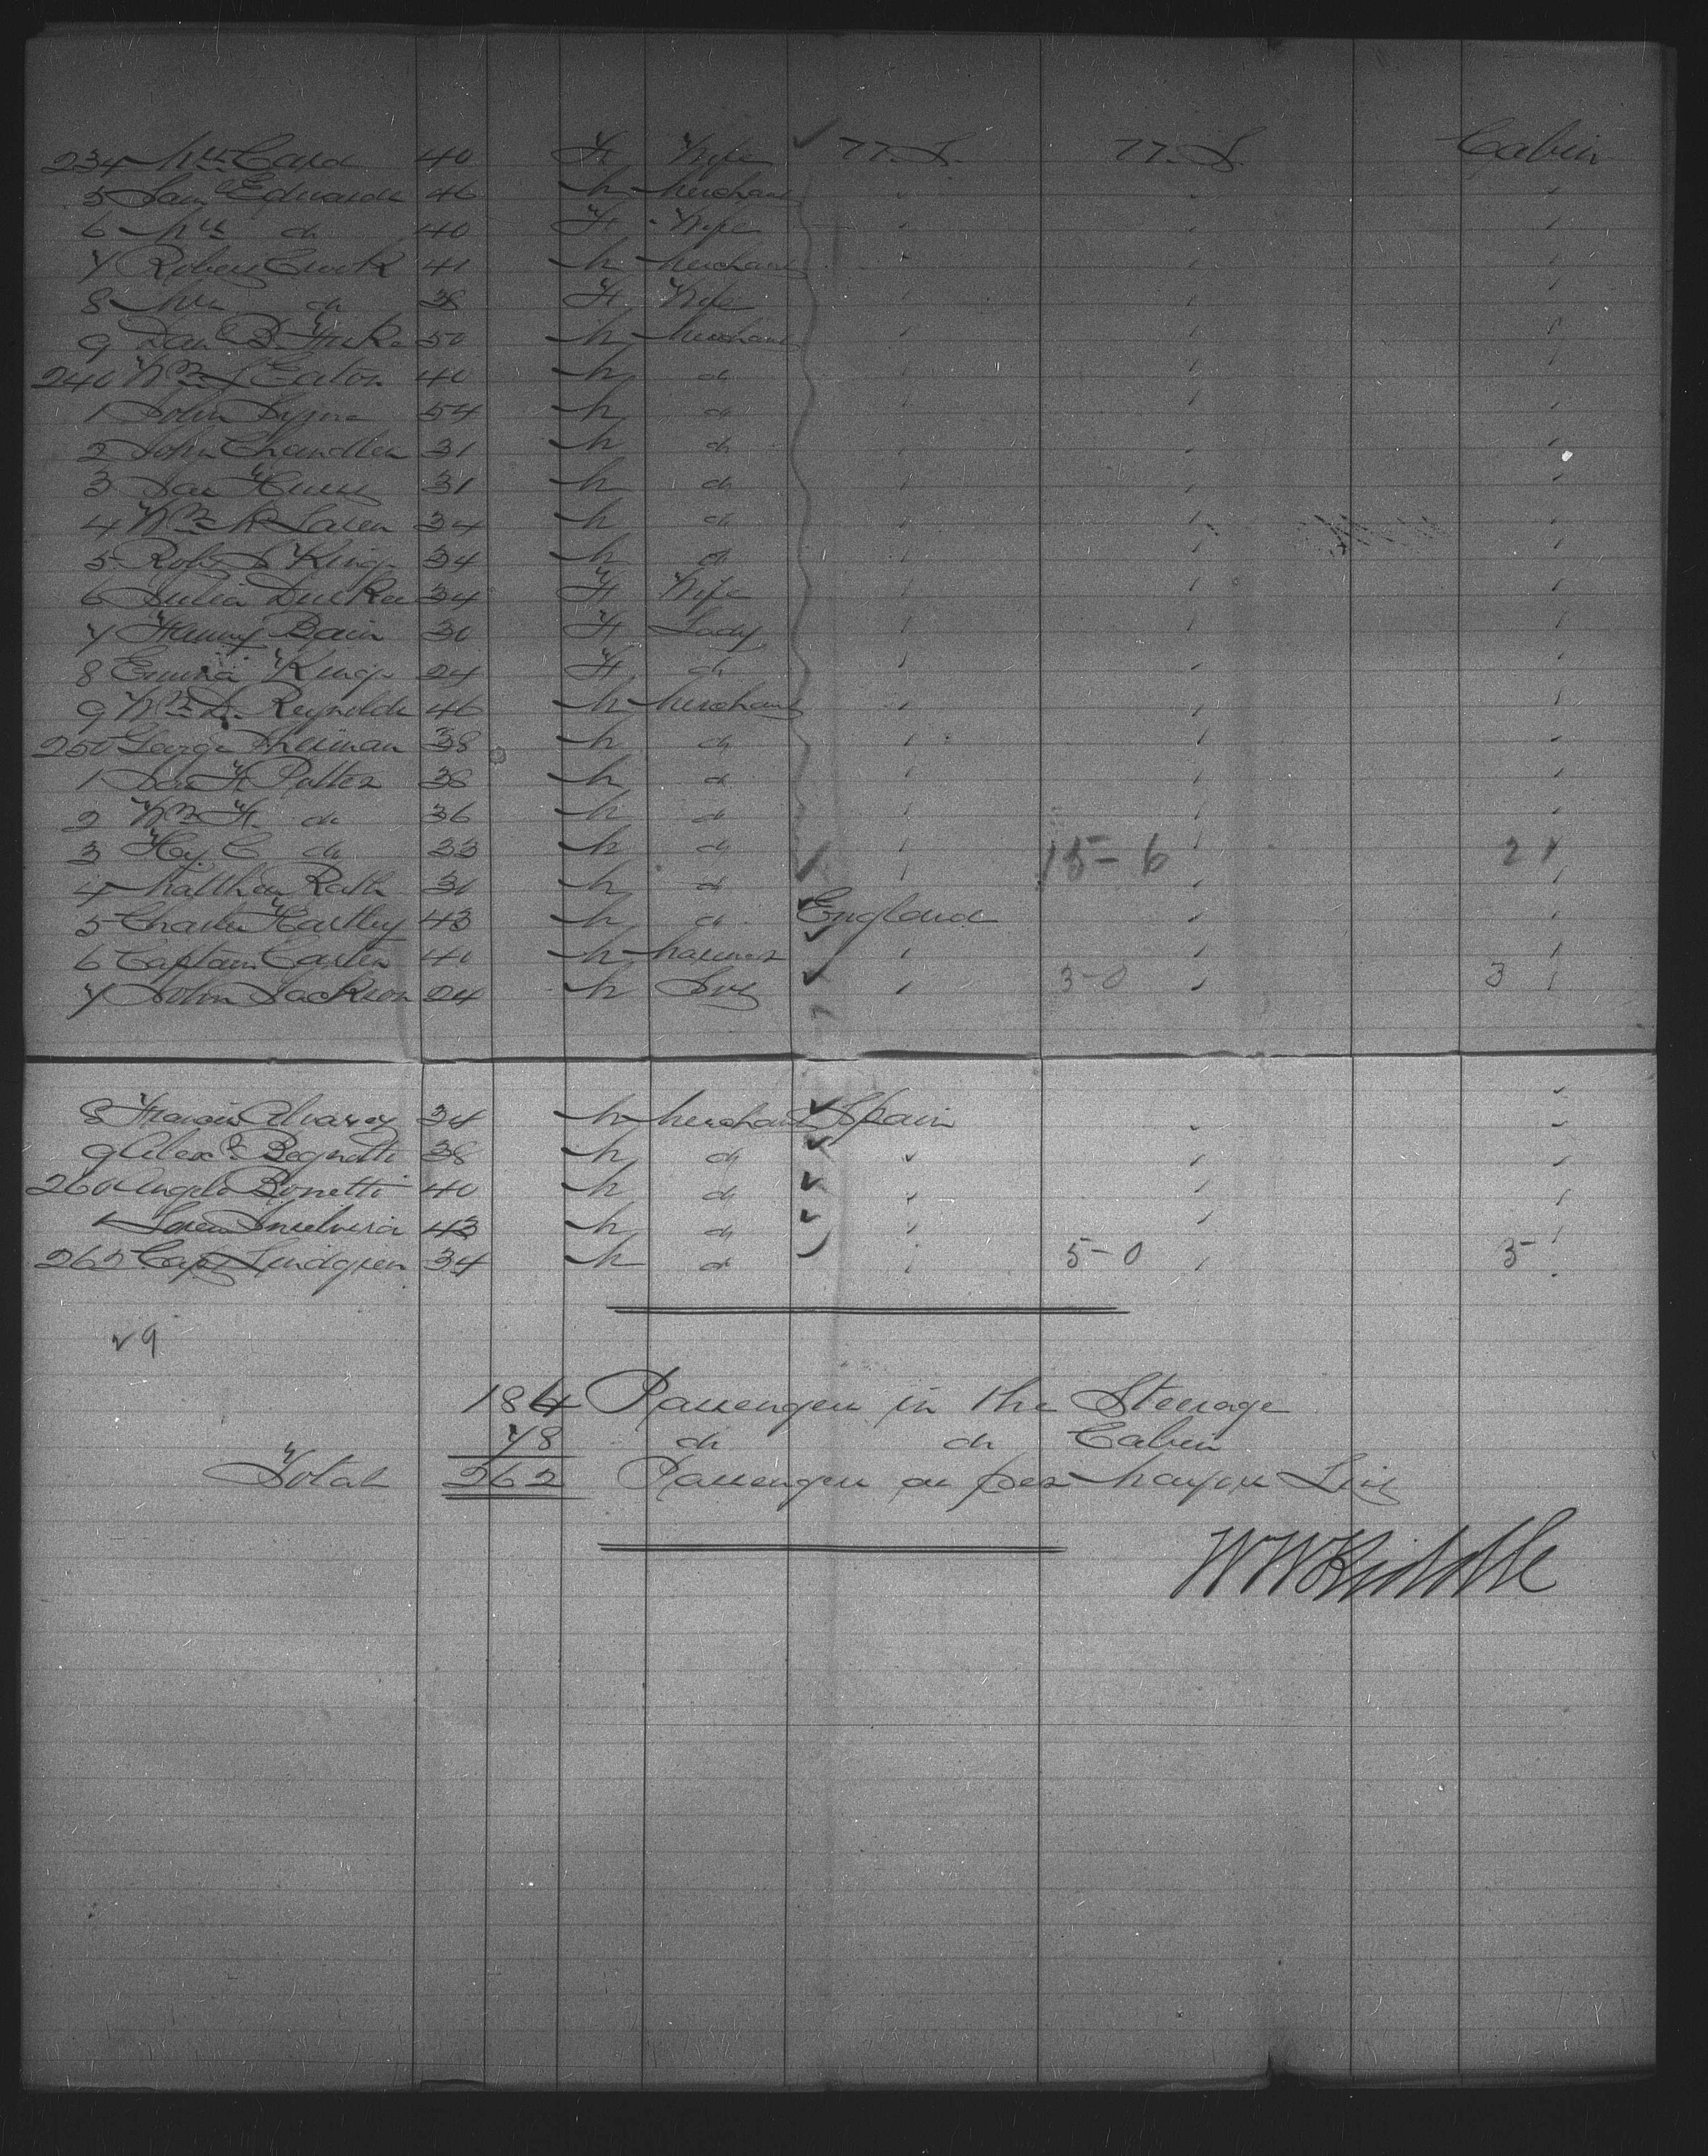 234 Mrs Card 40 F Wife U.S. U.S. Cabin
5 Saml Edwards 46 M Merchant
6 Mrs do 40 F Wife
7 Robert Crook 41 M Merchant
8 Mrs do 38 F Wife
9 Danl B. 50 M Merchant
240 Wm J Eaton 40 M do
1 John 54 M do
2 John Chandler 31 M do
3 31 M do
4 Wm McLaren 34 M do
5 Robt S King 34 M do
6 Julia 34 F Wife
7 Fanny Bain 30 F Lady
8 Emma King 24 F do
9 Wm D. Reynolds 46 M Merchant
250 George 38 M do
1 H Potter 38 M do
2 Wm H. do 36 M do
3 Hy. C do 33 M do 15-6 21
4 Matthew Rath 30 M do
5 Charles Hartley 43 M do England
6 Captain Carter 40 M Mariner
7 John Jackson 24 M Svt 3-0 3
8 Francis Alvarez 34 M Merchant Spain
9 Alexr Bognetti 38 M do
260 Angelo Bonetti 40 M do
1 43 M do
262 Capt Lindgren 34 M do 5-0 5
29
184 Passengers in the Steerage
78 do do Cabin
Total 262 Passengers as per List
WW Riddle